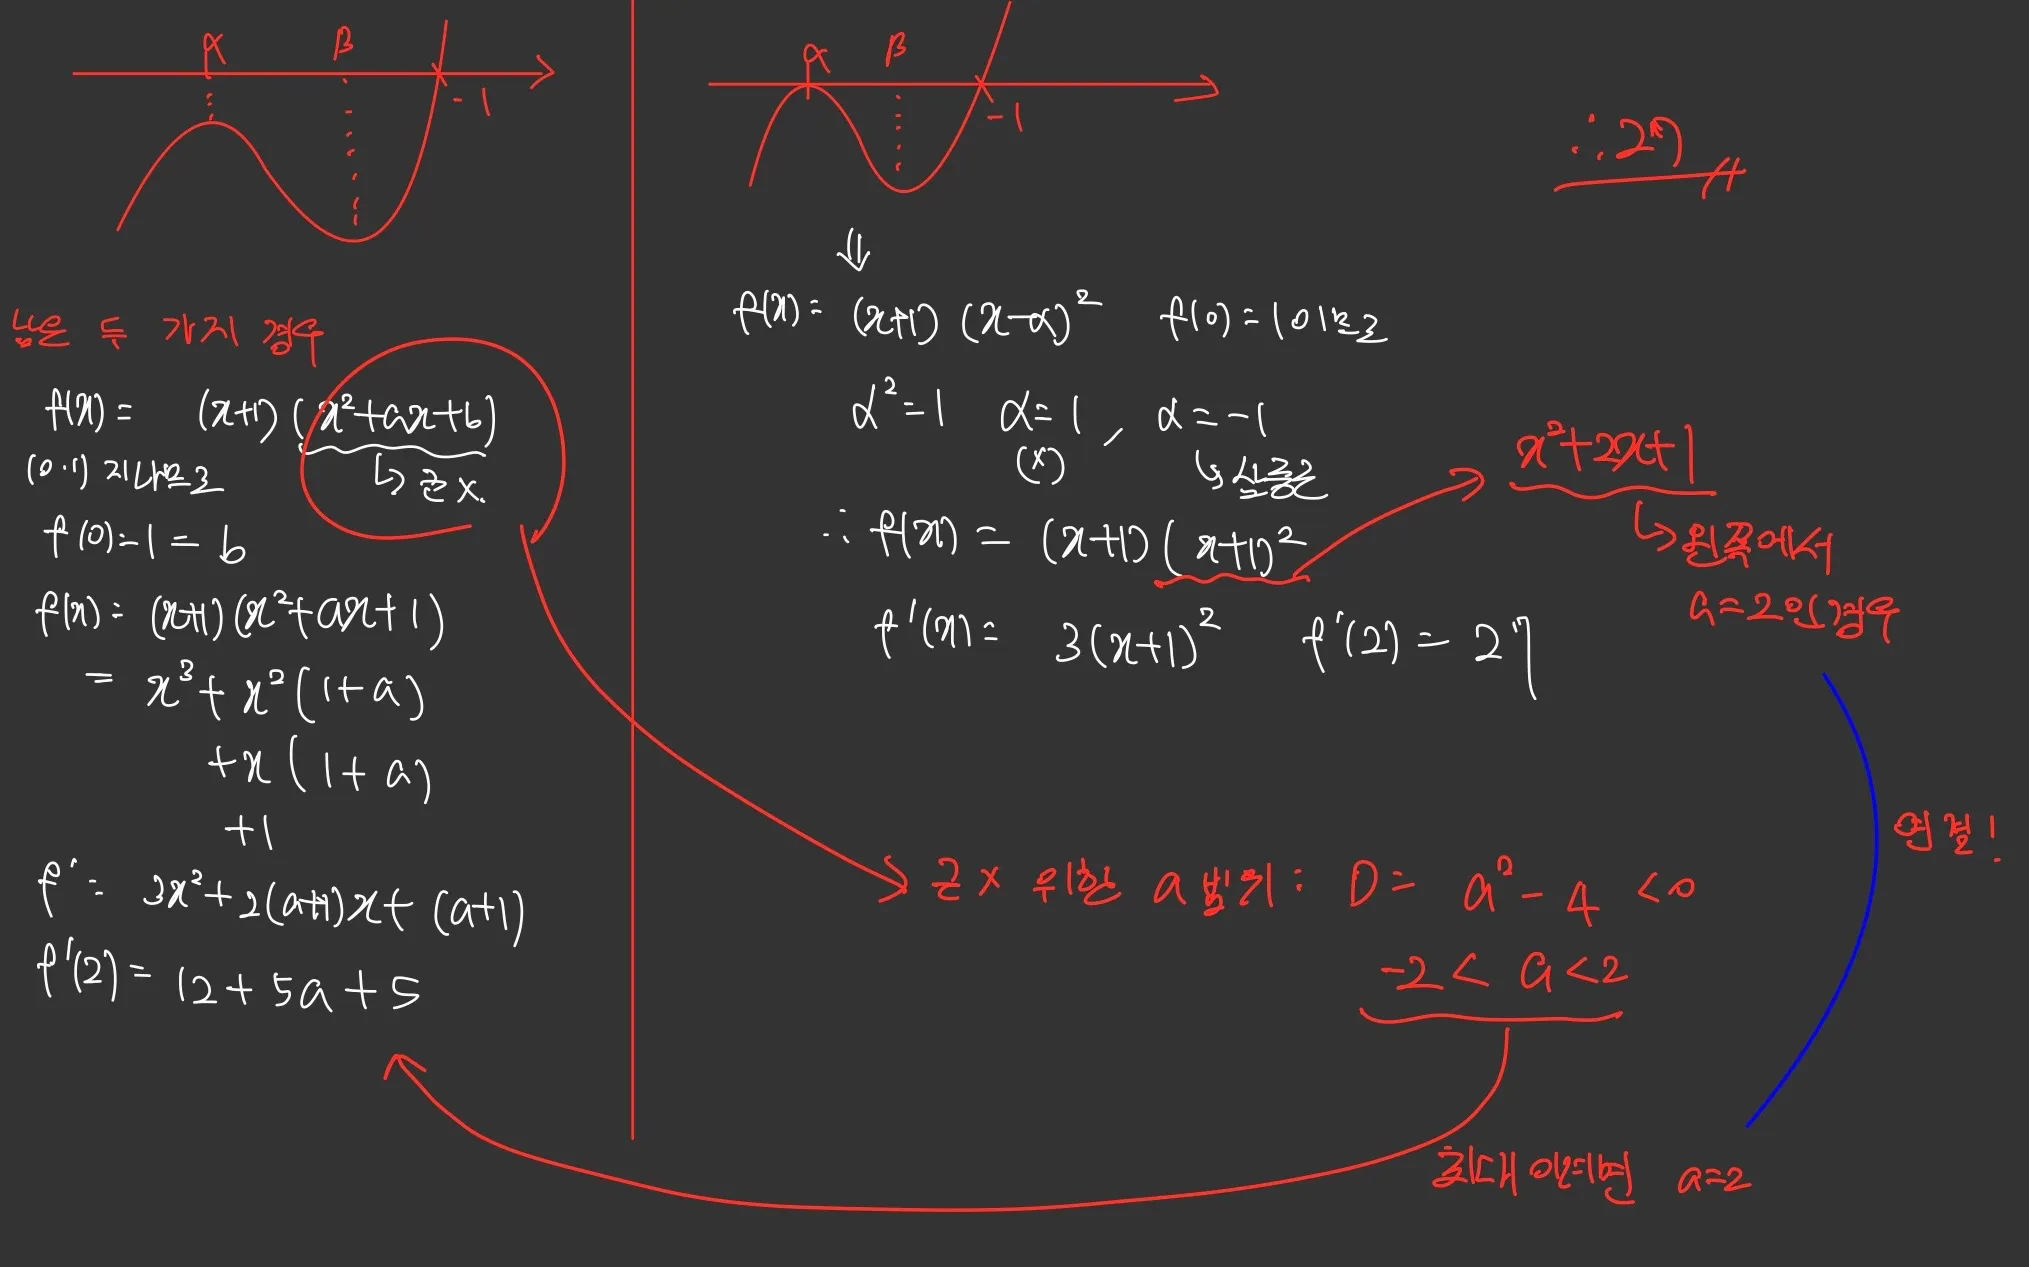 α β
-1
남은 두 가지 경우
f(x) = (x+1)(x²+ax+b)
(0.1) 지나므로
↳ 근 x.
f(0)=1=b
f(x) = (x+1)(x²+ax+1)
= x³+x²(1+a)
+x(1+a)
+1
f' = 3x²+2(a+1)x+(a+1)
f'(2) = 12+5a+5
α β
-1
⇓
f(x) = (x+1)(x-α)² f(0)=1이므로
α²=1 α=1, α=-1
(x) ↳ 삼중근
∴ f(x) = (x+1)(x+1)²
f'(x) = 3(x+1)² f'(2) = 27
∴ 27
x²+2x+1
↳ 왼쪽에서
a=2인 경우
근 x 위한 a 범위 : D = a²-4 <0
-2 < a < 2
연결!
최대 이려면 a=2